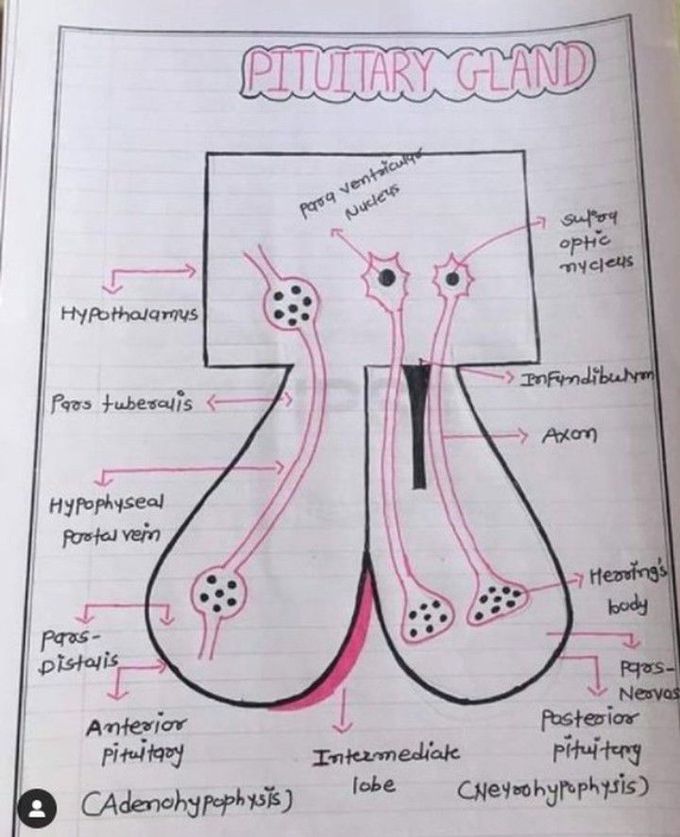 PITUITARY GLAND
Para ventricular
Nucleus
Supra
optic
nucleus
Hypothalamus
Infundibulum
Pars tuberalis
Axon
Hypophyseal
Portal vein
Herring's
body
Pars-
Distalis
Pars-
Nervos
Anterior
pituitary
(Adenohypophysis)
Intermediate
lobe
Posterior
pituitary
(Neurohypophysis)